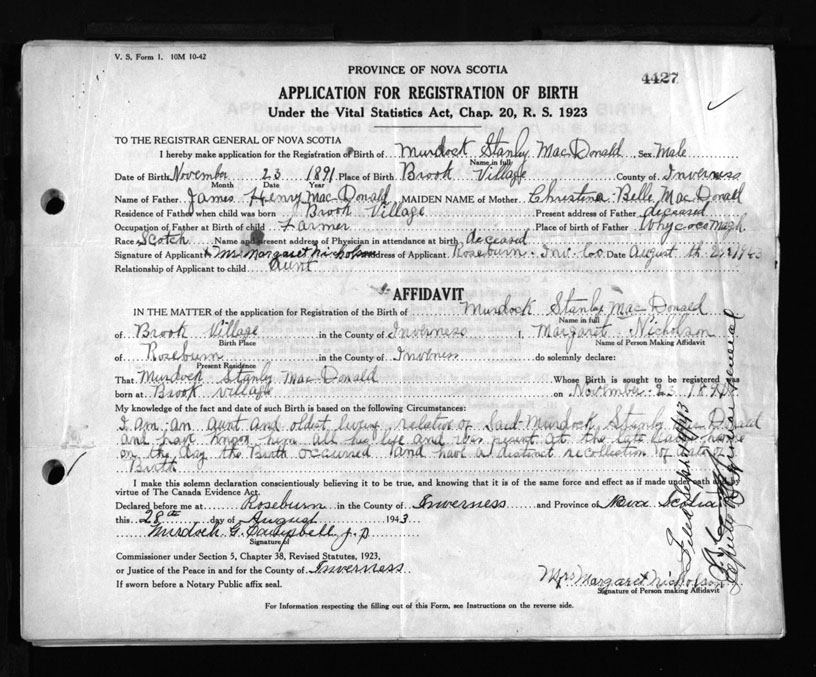 V. S. Form 1. 10M 10-42
4427
PROVINCE OF NOVA SCOTIA
APPLICATION FOR REGISTRATION OF BIRTH
Under the Vital Statistics Act, Chap. 20, R. S. 1923
TO THE REGISTRAR GENERAL OF NOVA SCOTIA
I hereby make application for the Registration of Birth of Murdock Stanly MacDonald Sex Male
Name in full
Date of Birth November 23 1891 Place of Birth Brook Village County of Inverness
Month Date Year
Name of Father James Henry MacDonald MAIDEN NAME of Mother Christina Belle MacDonald
Residence of Father when child was born Brook Village Present address of Father deceased
Occupation of Father at Birth of child Farmer Place of birth of Father Whycocomagh
Race Scotch Name and present address of Physician in attendance at birth deceased
Signature of Applicant Mrs Margaret Nicholson Address of Applicant Roseburn Inv. Co. Date August th 1943
Relationship of Applicant to child aunt
AFFIDAVIT
IN THE MATTER of the application for Registration of the Birth of Murdock Stanly MacDonald
Name in full
of Brook Village in the County of Inverness I, Margaret Nicholson
Birth Place Name of Person Making Affidavit
of Roseburn in the County of Inverness do solemnly declare:
Present Residence
That Murdock Stanly MacDonald Whose Birth is sought to be registered was
born at Brook village on November 23 1891
My knowledge of the fact and date of such Birth is based on the following Circumstances:
I am an aunt and oldest living relative of Said Murdock Stanly MacDonald
and have known him all his life and was present at the house
on the day the Birth occurred and have a distinct recollection of date of
Birth
I make this solemn declaration conscientiously believing it to be true, and knowing that it is of the same force and effect as if made under oath and by
virtue of The Canada Evidence Act.
Declared before me at Roseburn in the County of Inverness and Province of Nova Scotia
this 28th day of August 1943
Murdoch G. Campbell J. P.
Signature of
Commissioner under Section 5, Chapter 38, Revised Statutes, 1923,
or Justice of the Peace in and for the County of Inverness
If sworn before a Notary Public affix seal.
Mrs Margaret Nicholson
Signature of Person making Affidavit
For Information respecting the filling out of this Form, see Instructions on the reverse side.
Filed
Deputy Registrar General